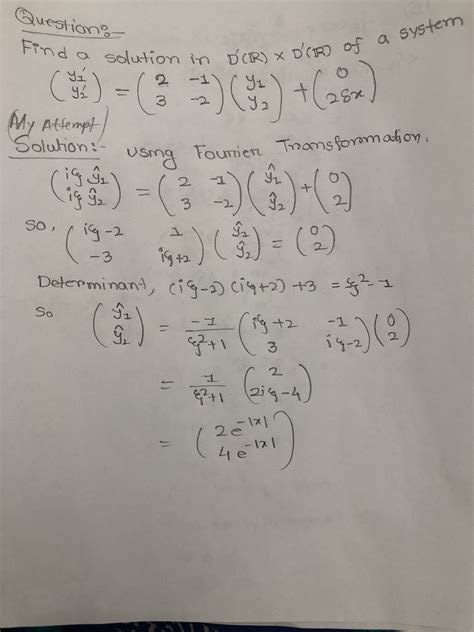 Question:-
Find a solution in D'(R) × D'(R) of a system
(y₁' y₂') = (2 -1 3 -2) (y₁ y₂) + (0 2δx)
(My Attempt)
Solution:- using Fourier Transformation,
(iξ ŷ₁ iξ ŷ₂) = (2 -1 3 -2) (ŷ₁ ŷ₂) + (0 2)
So, (iξ-2 1 -3 iξ+2) (ŷ₁ ŷ₂) = (0 2)
Determinant, (iξ-2) (iξ+2) +3 = -ξ²-1
So (ŷ₁ ŷ₂) = -1/ξ²+1 (iξ+2 -1 3 iξ-2) (0 2)
= 1/ξ²+1 (2 2iξ-4)
= (2e^-|x| 4e^-|x|)